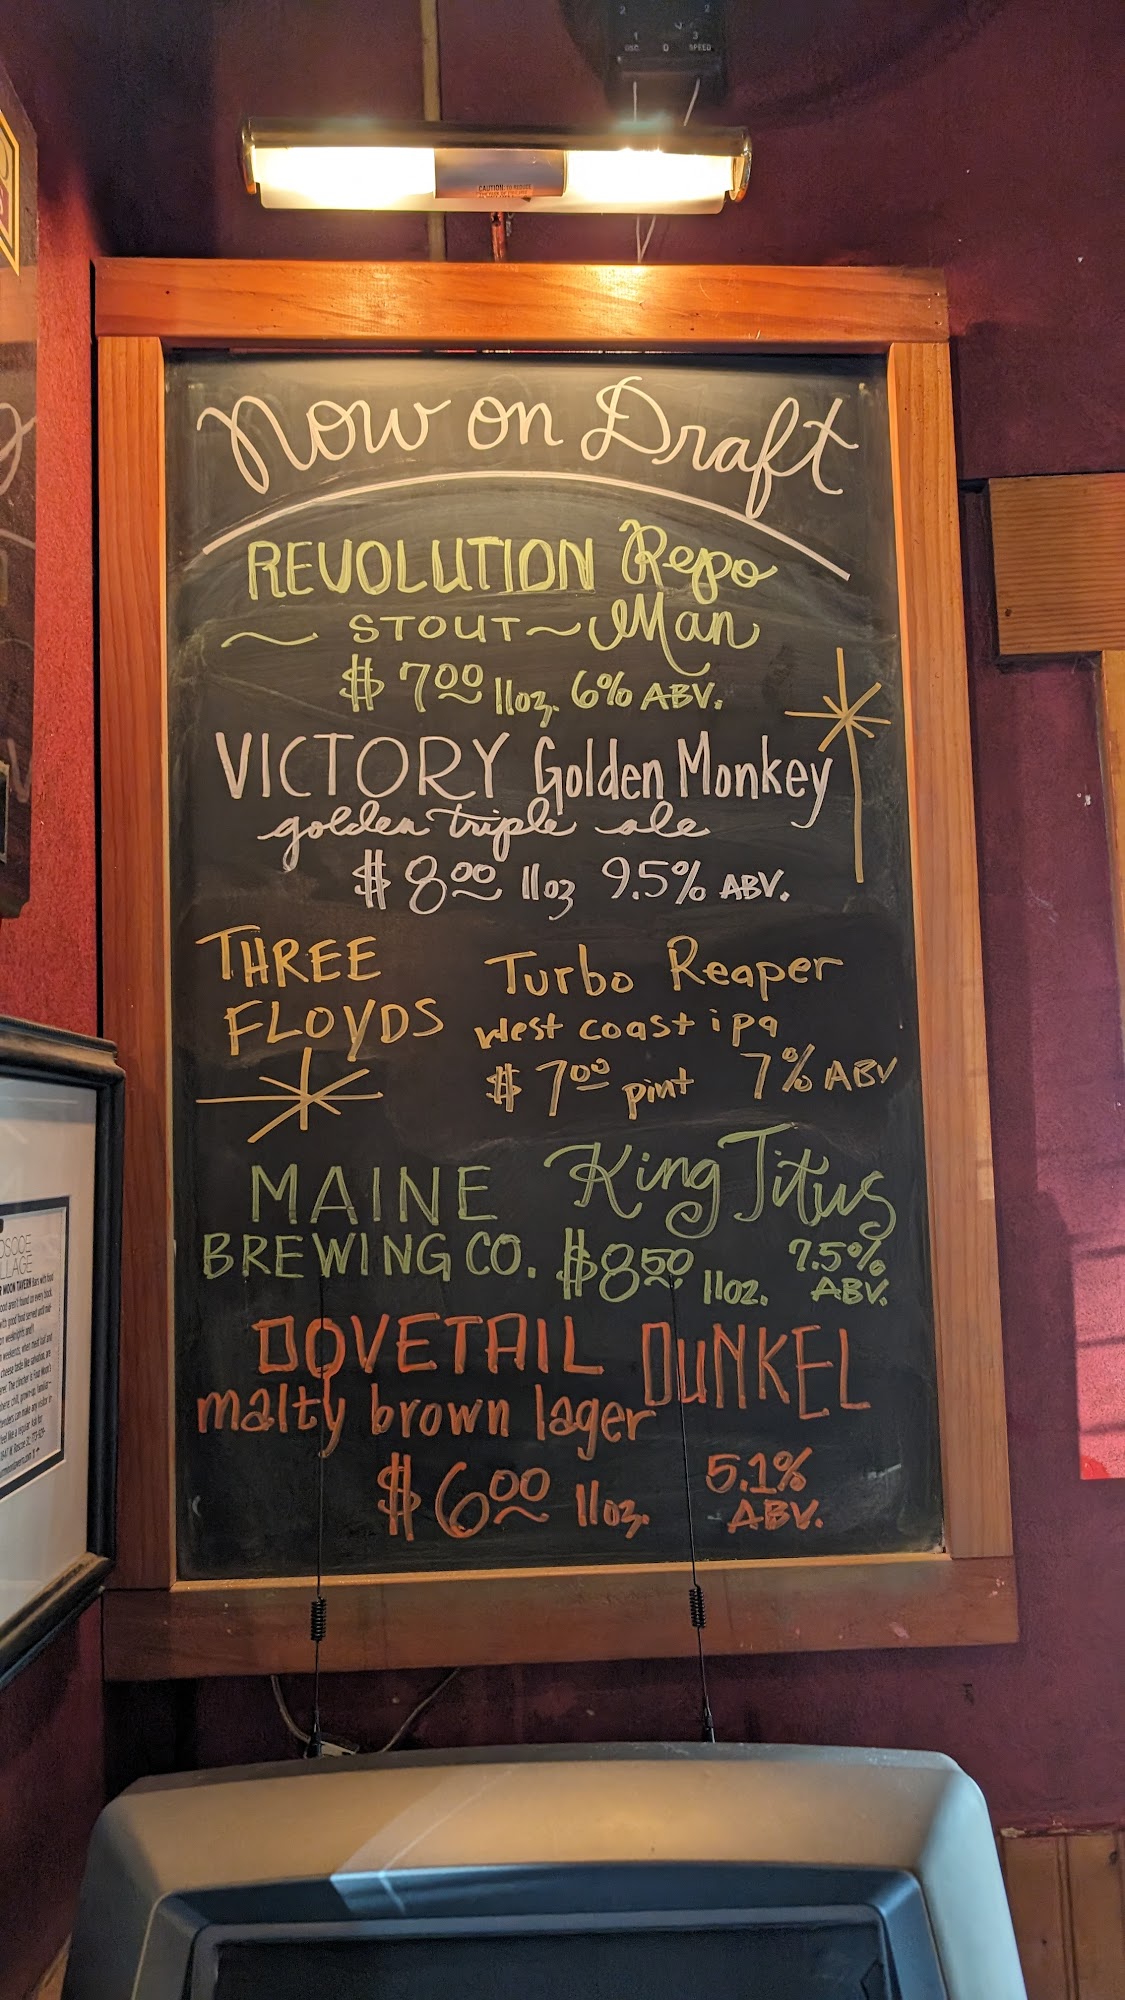 2 2
1 3
OSC. 0 SPEED
CAUTION: TO REDUCE
Now on Draft
REVOLUTION Repo
~ STOUT ~ Man
$ 7.00 11oz. 6% ABV.
VICTORY Golden Monkey
golden triple ale
$ 8.00 11oz 9.5% ABV.
THREE
FLOYDS
Turbo Reaper
west coast ipa
$ 7.00 pint 7% ABV
MAINE King Titus
BREWING CO. $8.50 11oz. 7.5%
ABV.
DOVETAIL DUNKEL
malty brown lager
$ 6.00 11oz. 5.1%
ABV.
MOON TAVERN